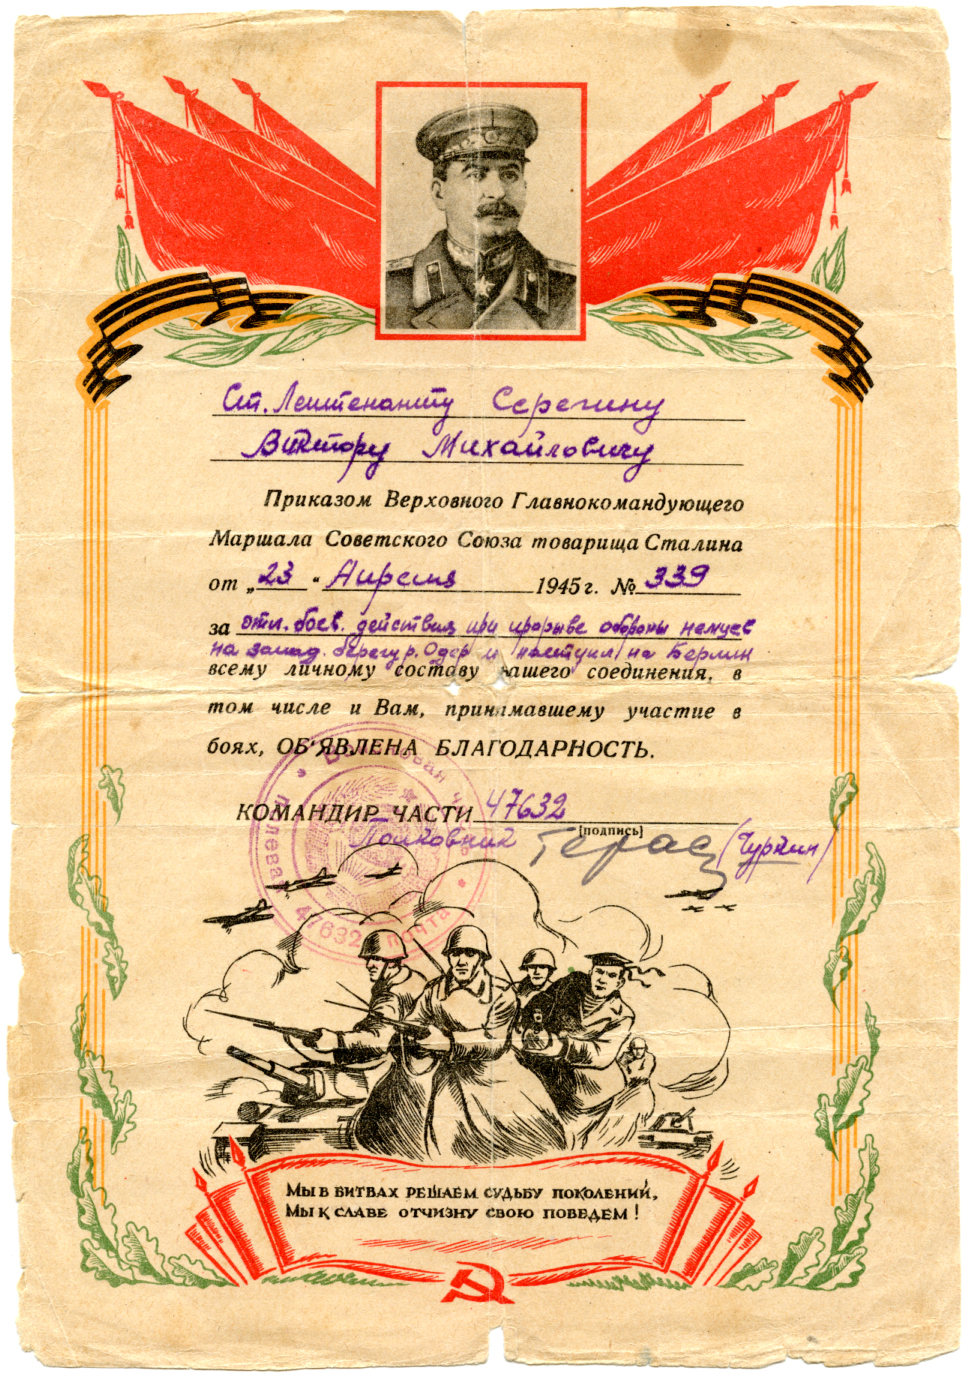 Ст. Лейтенанту Серегину
Виктору Михайловичу
Приказом Верховного Главнокомандующего
Маршала Советского Союза товарища Сталина
от „23“ Апреля 1945 г. № 339
за отл. боев. действия при прорыве обороны немцев
на запад. берегу р. Одер и наступл на Берлин
всему личному составу нашего соединения, в
том числе и Вам, принимавшему участие в
боях, ОБ'ЯВЛЕНА БЛАГОДАРНОСТЬ.
КОМАНДИР ЧАСТИ 47632
(подпись)
Полковник (Чуркин)
полевая почта 47632
МЫ В БИТВАХ РЕШАЕМ СУДЬБУ ПОКОЛЕНИЙ,
МЫ К СЛАВЕ ОТЧИЗНУ СВОЮ ПОВЕДЕМ!